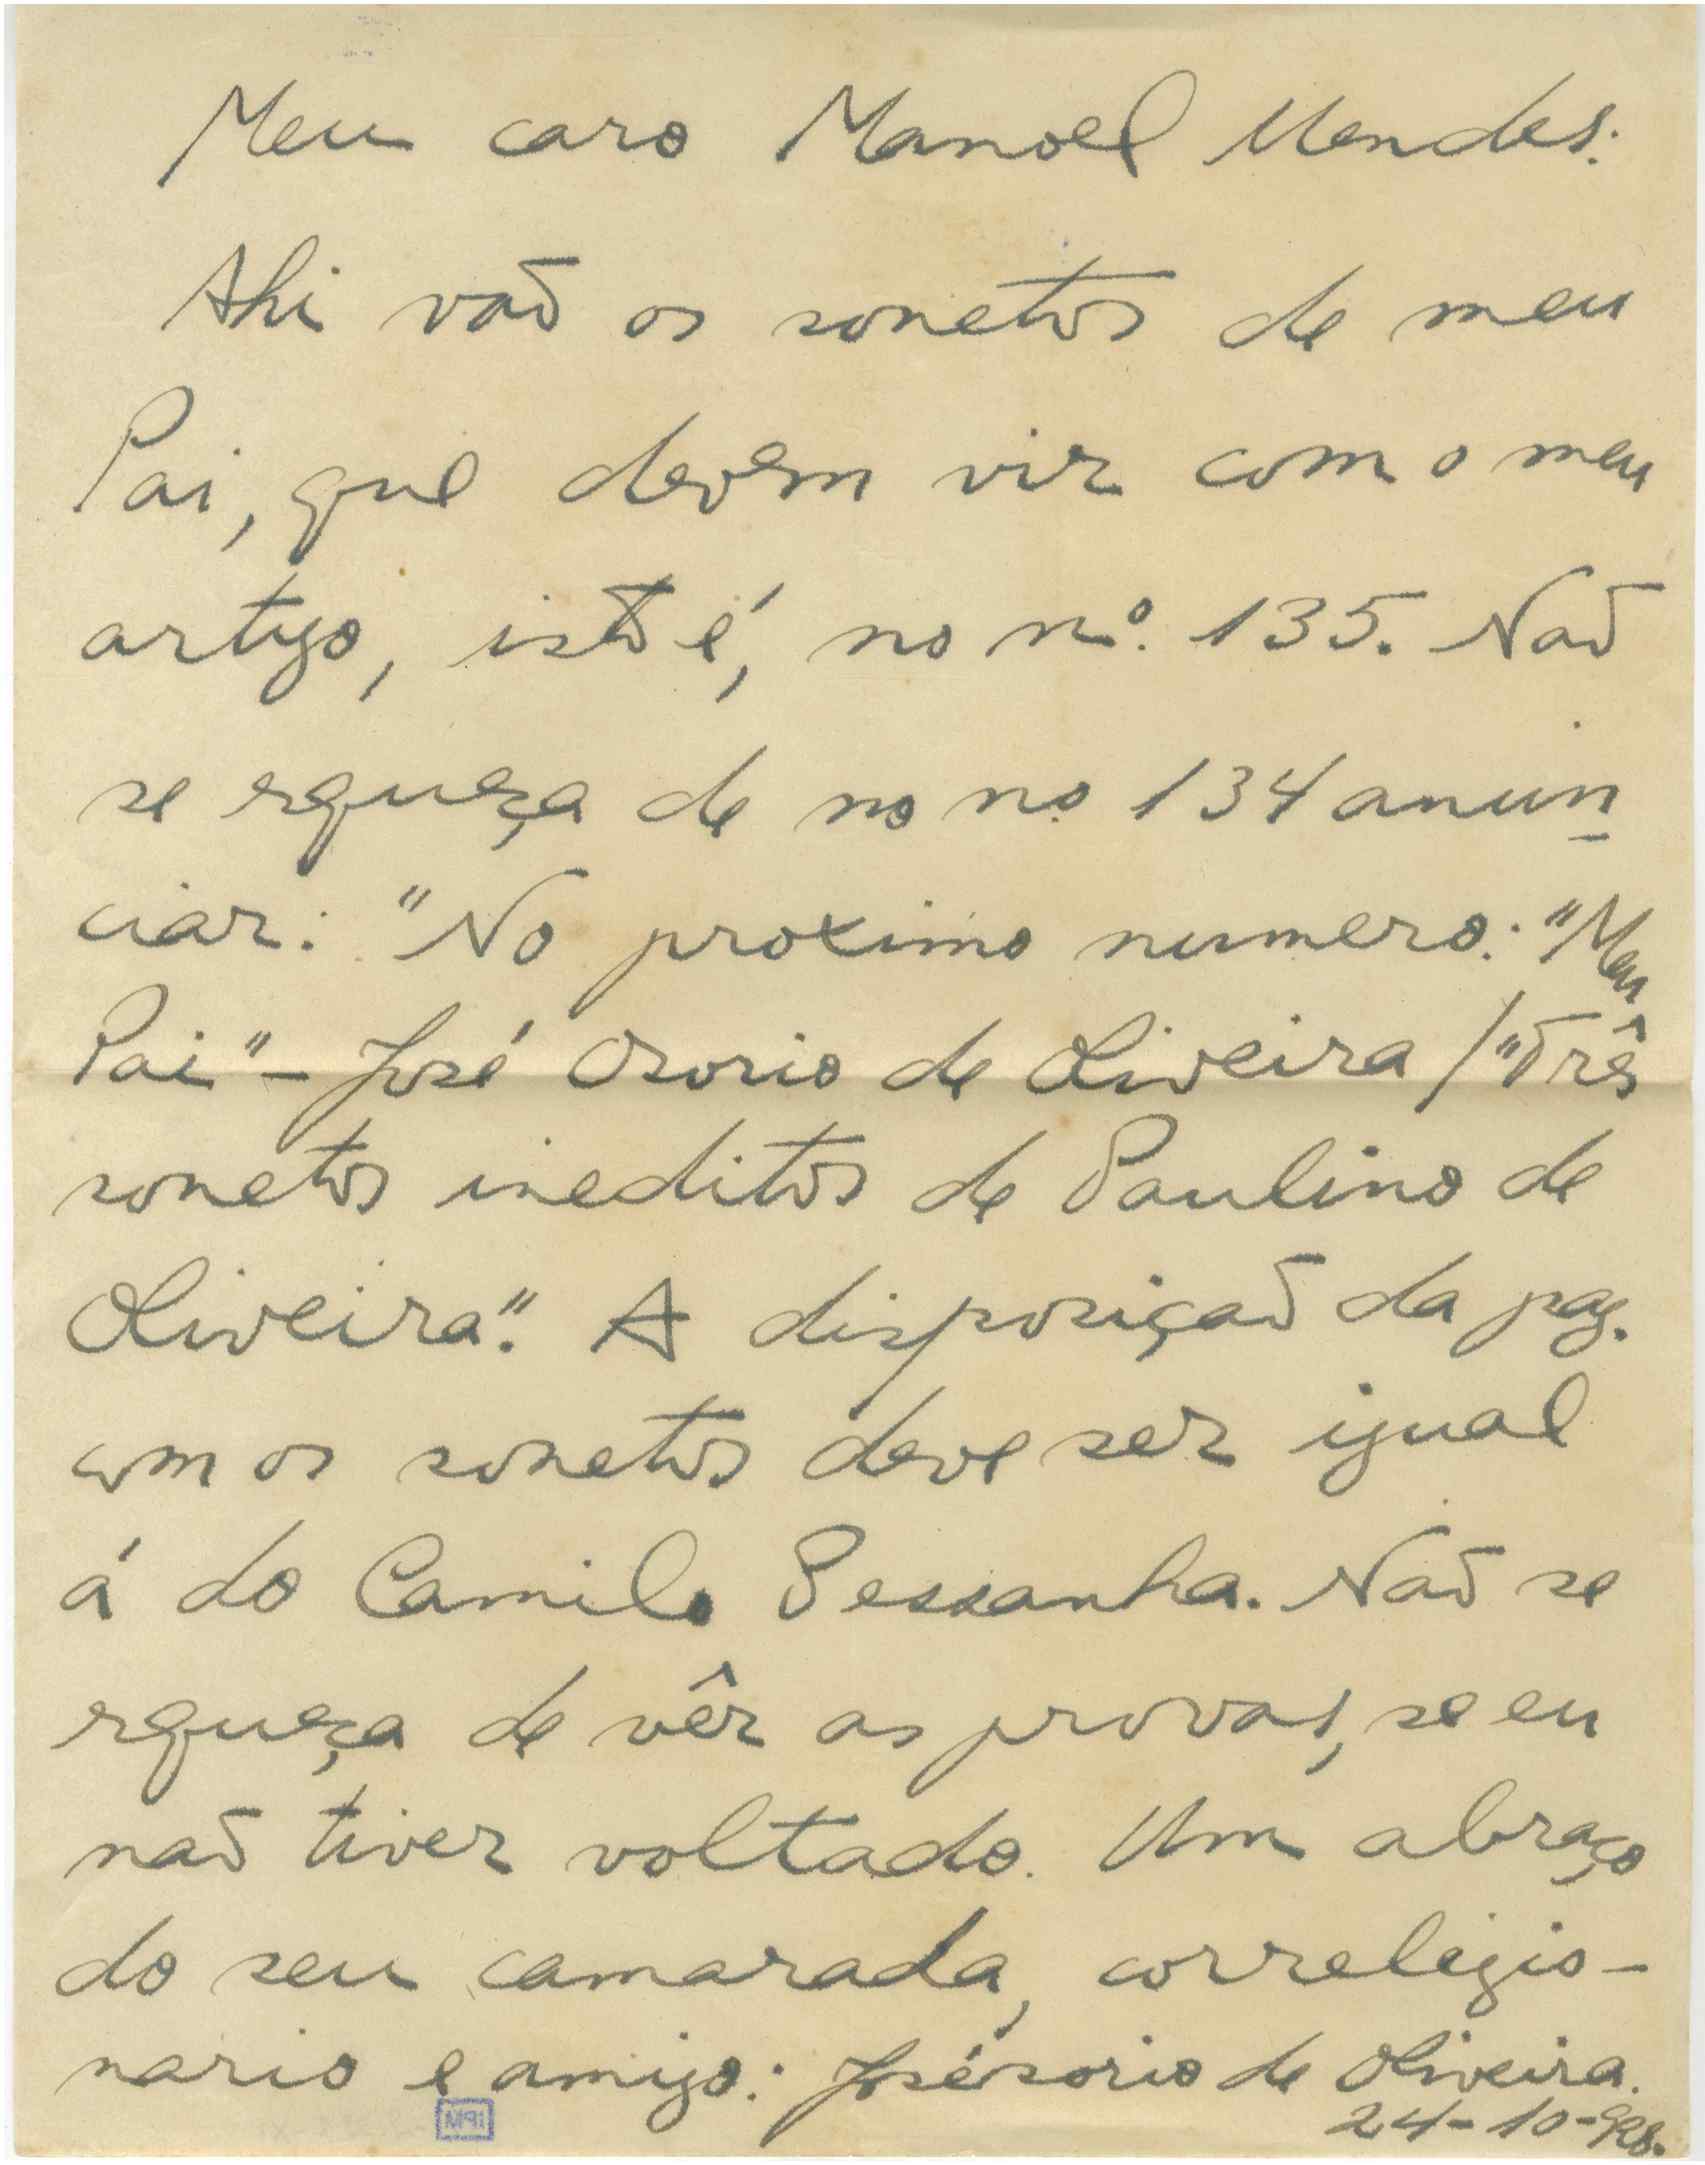 Meu caro Manoel Mendes:
Ahi vaõ os sonetos de meu
Pai, que devem vir com o meu
artigo, isto é, no nº. 135. Naõ
se esqueça de no no 134 anun
ciar: "No proximo numero: "Meu
Pai" - José Osorio de Oliveira / "Três
sonetos ineditos de Paulino de
Oliveira". A disposiçaõ da pag.
com os sonetos deve ser igual
á do Camilo Pessanha. Naõ se
esqueça de vêr as provas, se eu
naõ tiver voltado. Um abraço
do seu camarada, correligio-
nario e amigo: José Osorio de Oliveira.
24-10-928.